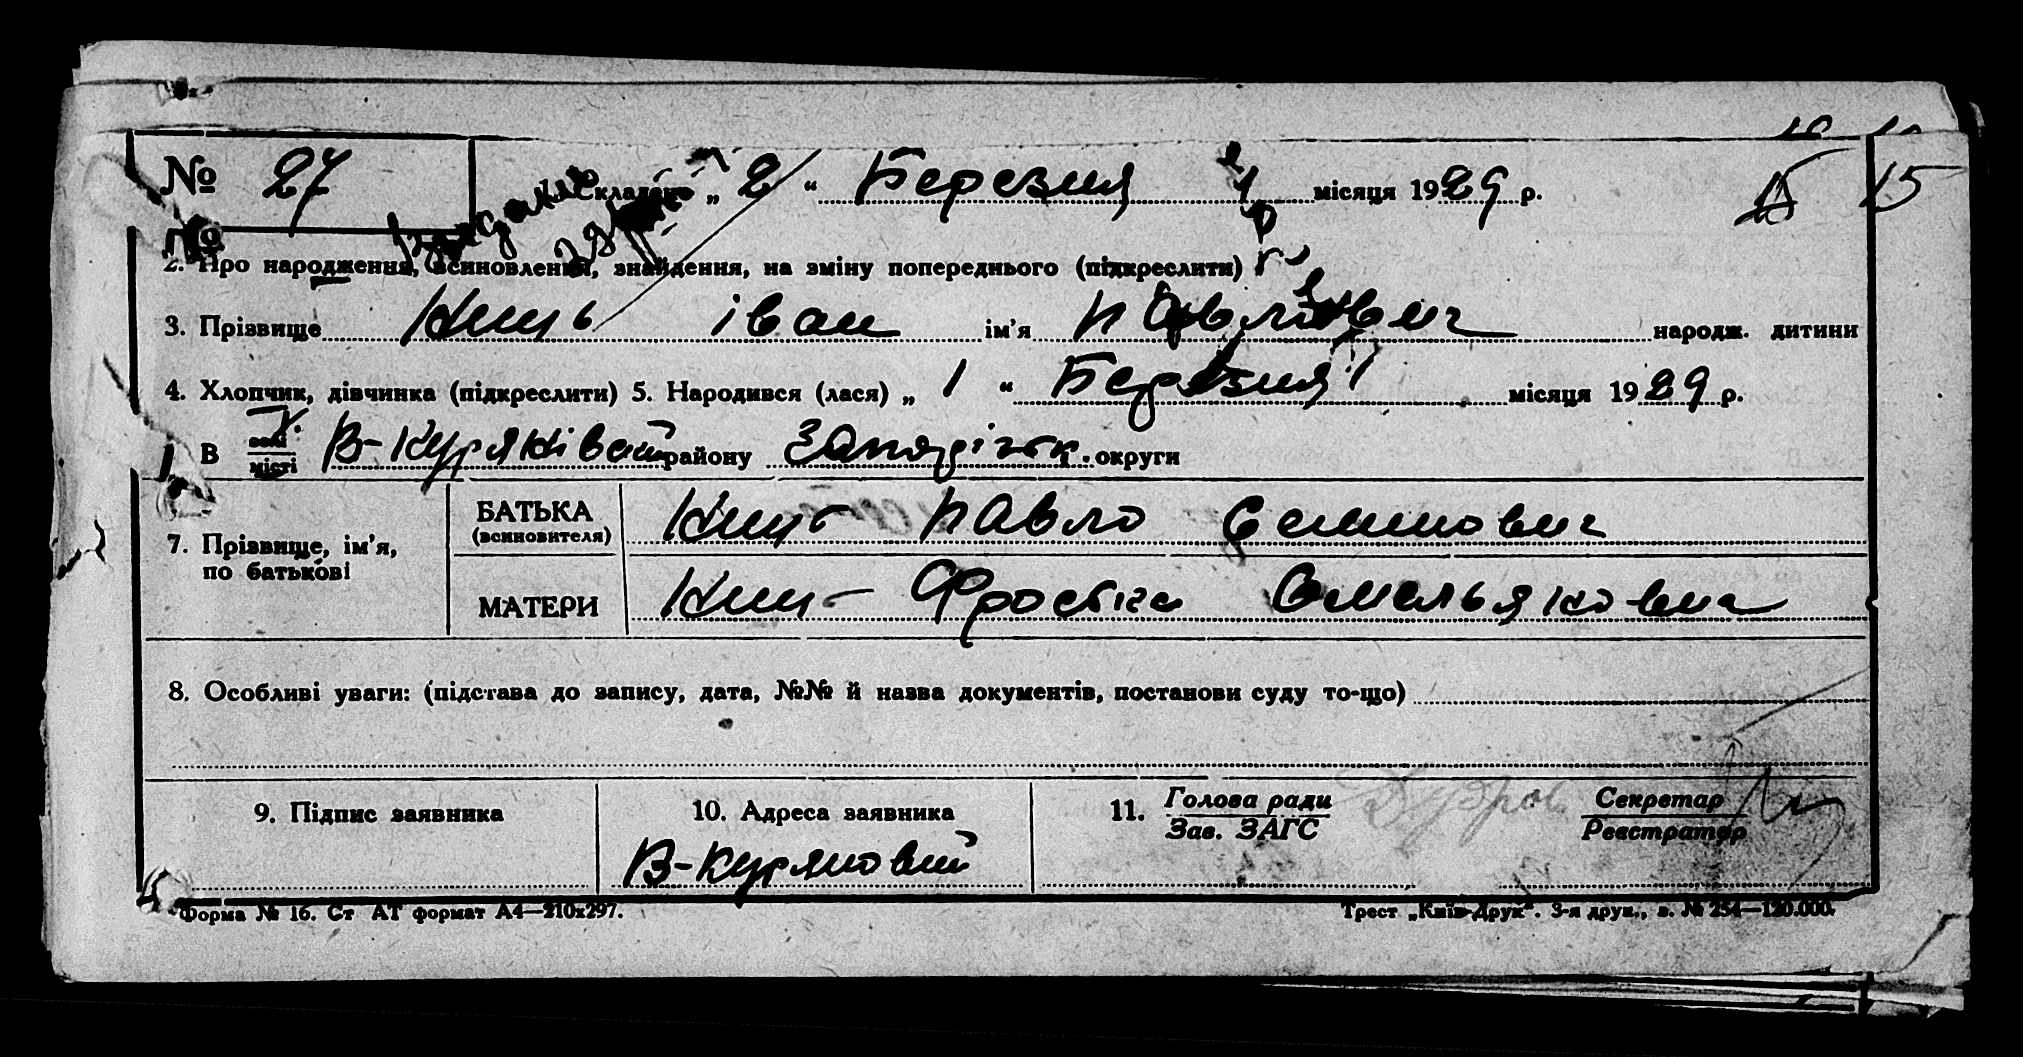 № 27 Складено „ 2 “ Березня місяця 1929 р. 15 15
2. Про народження, всиновлення, знайдення, на зміну попереднього (підкреслити)
3. Прізвище Кищь Іван ім’я Павлович народж. дитини
4. Хлопчик, дівчинка (підкреслити) 5. Народився (лася) „ 1 “ Березня місяця 1929 р.
В селі місті района округи В-Куряковий району
7. Прізвище, ім’я, по батькові
БАТЬКА Кищ Павло Семинович
(всиновителя)
МАТЕРИ Кищ Фроська Омельяковна
8. Особливі уваги: (підстава до запису, дата, №№ й назва документів, постанови суду то-що)
9. Підпис заявника 10. Адреса заявника 11. Голова ради Секретар
Зав. ЗАГС Реєстратор
В-Куряковий
Форма № 16. Ст АТ формат А4—210х297. Трест „Київ-Друк“. 3-я друк., з. № 254—120.000.